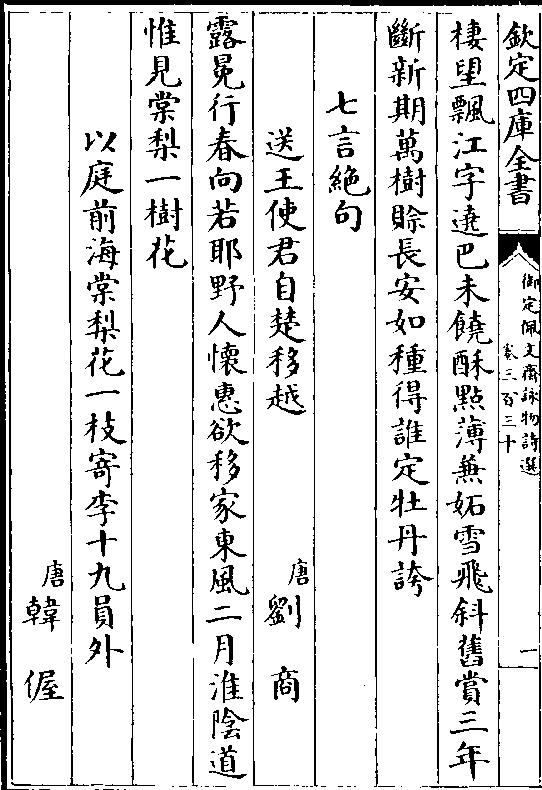 欽定四庫全書
御定佩文齋詠物詩選
卷三百三十
一
棲望飄江字遶巴未饒酥點薄兼妬雪飛斜舊賞三年
斷新期萬樹賒長安如種得誰定牡丹誇
七言絶句
送王使君自楚移越
唐劉商
露冕行春向若耶野人懷惠欲移家東風二月淮陰道
惟見棠梨一樹花
以庭前海棠梨花一枝寄李十九員外
唐韓偓